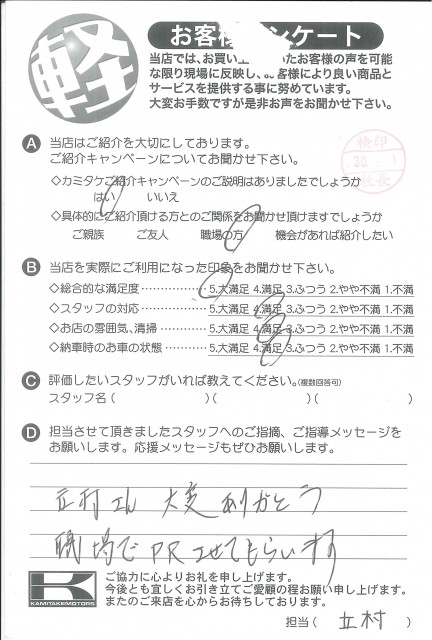 軽
お客様アンケート
当店では、お買い上
たお客様の声を可能
な限り現場に反映し、お客様により良い商品と
サービスを提供する事に努めています。
大変お手数ですが是非お声をお聞かせ下さい。
A 当店はご紹介を大切にしております。
ご紹介キャンペーンについてお聞かせ下さい。
検印
社長
◇カミタケご紹介キャンペーンのご説明はありましたでしょうか
はい いいえ
◇具体的にご紹介頂ける方とのご関係をお聞かせ頂けますでしょうか
ご親族 ご友人 職場の方 機会があれば紹介したい
B 当店を実際にご利用になった印象をお聞かせ下さい。
◇総合的な満足度………… 5.大満足 4.満足 3.ふつう 2.やや不満 1.不満
◇スタッフの対応………… 5.大満足 4.満足 3.ふつう 2.やや不満 1.不満
◇お店の雰囲気、清掃……… 5.大満足 4.満足 3.ふつう 2.やや不満 1.不満
◇納車時のお車の状態……… 5.大満足 4.満足 3.ふつう 2.やや不満 1.不満
C 評価したいスタッフがいれば教えてください。(複数回答可)
スタッフ名( )( )( )
D 担当させて頂きましたスタッフへのご指摘、ご指導メッセージを
お願いします。応援メッセージもぜひお願いします。
立村さん 大変ありがとう
職場でPRさせてもらいます
K
KAMITAKEMOTORS
ご協力に心よりお礼を申し上げます。
今後とも宜しくお引き立てご愛顧の程お願い申し上げます。
またのご来店を心からお待ちしております。
担当( 立村 )